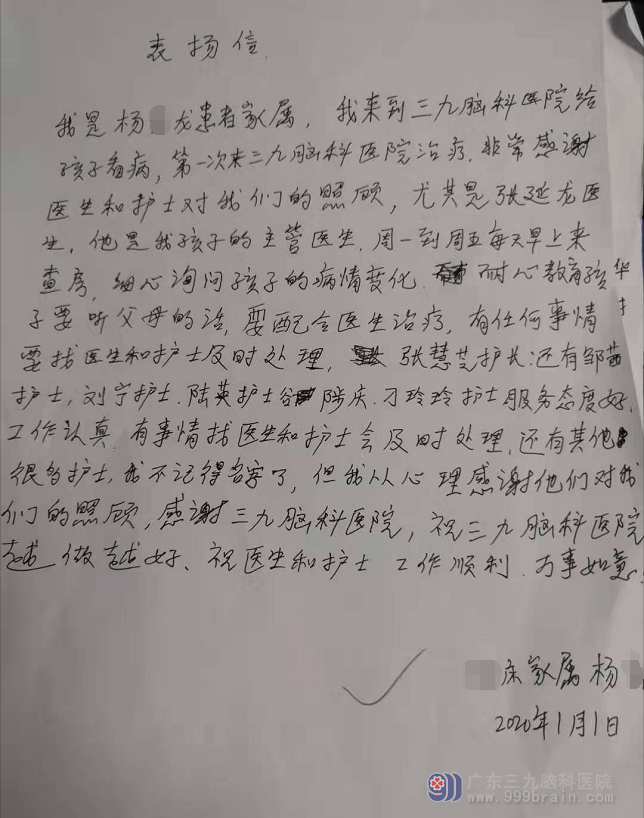 表扬信
我是杨 龙患者家属，我来到三九脑科医院给
孩子看病，第一次来三九脑科医院治疗，非常感谢
医生和护士对我们的照顾，尤其是张延龙医
生，他是我孩子的主管医生，周一到周五每天早上来
查房，细心询问孩子的病情变化，耐心教育孩
子要听父母的话，要配合医生治疗，有任何事情
要找医生和护士及时处理，张慧芸护长，还有邹茜
护士，刘宁护士，陆英护士，陈庆，刁玲玲护士服务态度好，
工作认真，有事情找医生和护士会及时处理，还有其他
很多护士，我不记得名字了，但我从心理感谢他们对我
们的照顾，感谢三九脑科医院，祝三九脑科医院
越做越好、祝医生和护士工作顺利，万事如意。
床家属 杨
2020年1月1日
广东三九脑科医院
www.999brain.com